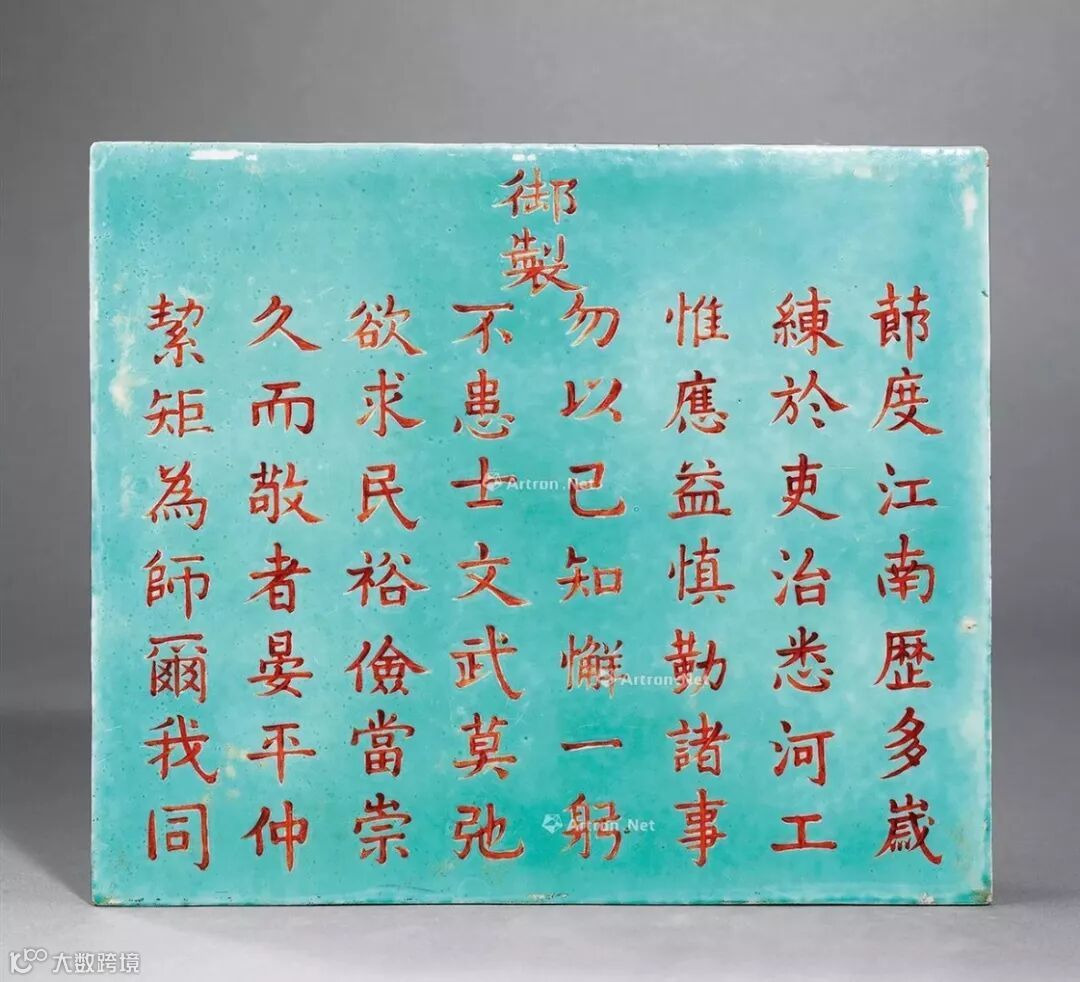 御製
莭度江南歷多歲
練於吏治悉河工
惟應益慎勤諸事
勿以已知懈一躬
不患士文武莫弛
欲求民裕儉當崇
久而敬者晏平仲
絜矩為師爾我同
Artron.Net
Artron.Net
Artron.Net
大数跨境